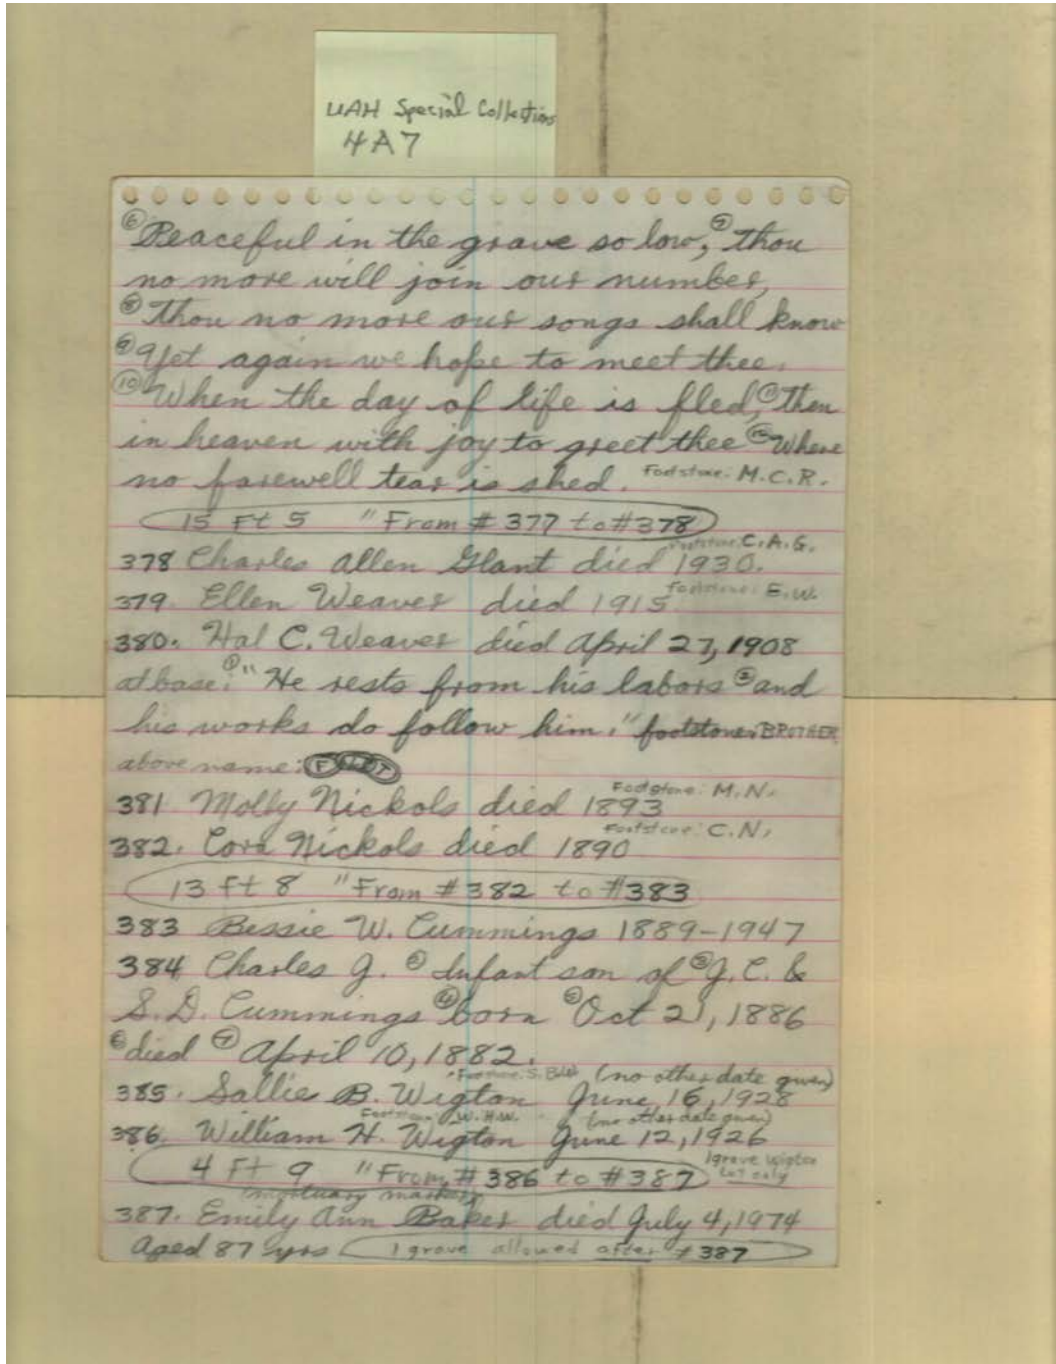 UAH Special Collections
4A7
⑥Peaceful in the grave so low, ⑦thou
no more will join our number,
⑧Thou no more our songs shall know
⑨Yet again we hope to meet thee.
⑩When the day of life is fled, ⑪Then
in heaven with joy to greet thee ⑫Where
no farewell tear is shed. Footstone: M.C.R.
15 Ft 5 " From # 377 to #378
Footstone: C.A.G.
378 Charles Allen Glant died 1930.
379. Ellen Weaver died 1915 Footstone: E.W.
380. Hal C. Weaver died April 27, 1908
at base: ①"He rests from his labors ②and
his works do follow him." footstone: BROTHER
above name:
Footstone: M.N.
381 Molly Nickols died 1893
Footstone: C.N.
382. Cora Nickols died 1890
13 ft 8 " From #382 to #383
383 Bessie W. Cummings 1889-1947
384 Charles G. ② Infant son of ③J.C. &
S.D. Cummings ④born ⑤Oct 21, 1886
⑥died ⑦April 10, 1882.
Footstone: S.B.W. (no other date given)
385. Sallie B. Wigton June 16, 1928
Footstone: W.H.W. (no other date given)
386. William H. Wigton June 12, 1926
4 Ft 9 " From # 386 to #387 1 grave Wigton
Lot only
(mortuary marker)
387. Emily Ann Baker died July 4, 1974
Aged 87 yrs 1 grave allowed after #387